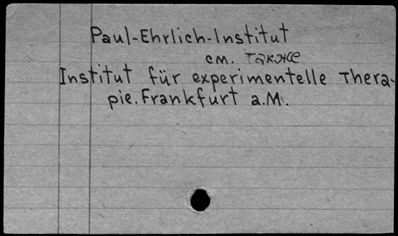 Paul-Ehrlich-Institut
см. также
Institut für experimentelle Thera-
pie. Frankfurt a.M.